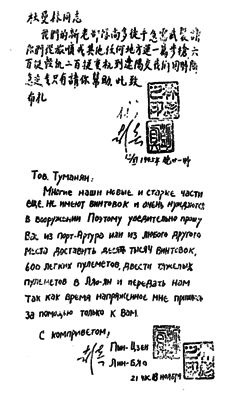 杜曼様同志
我們的新老部隊尚多徒手急需武裝請
你們從旅順或其他任何地方運一萬步槍六
百挺輕机二百挺重机到遼陽交我們因時間
急迫只有請你幫助 此致
布礼
Тов. Туманян:
Многие наши новые и старые части
еще не имеют винтовок и очень нуждаются
в вооружении Поэтому убедительно прошу
Вас из Порт-Артура или из любого другого
места доставить десять тысяч винтовок,
600 легких пулеметов, двести тяжелых
пулеметов в Ляо-Ян и передать нам
Так как время напряженное мне пришлось
за помощью только к Вам.
С комприветом,
Пын-Цзен
Лин-Бяо
21 час 13 ноября